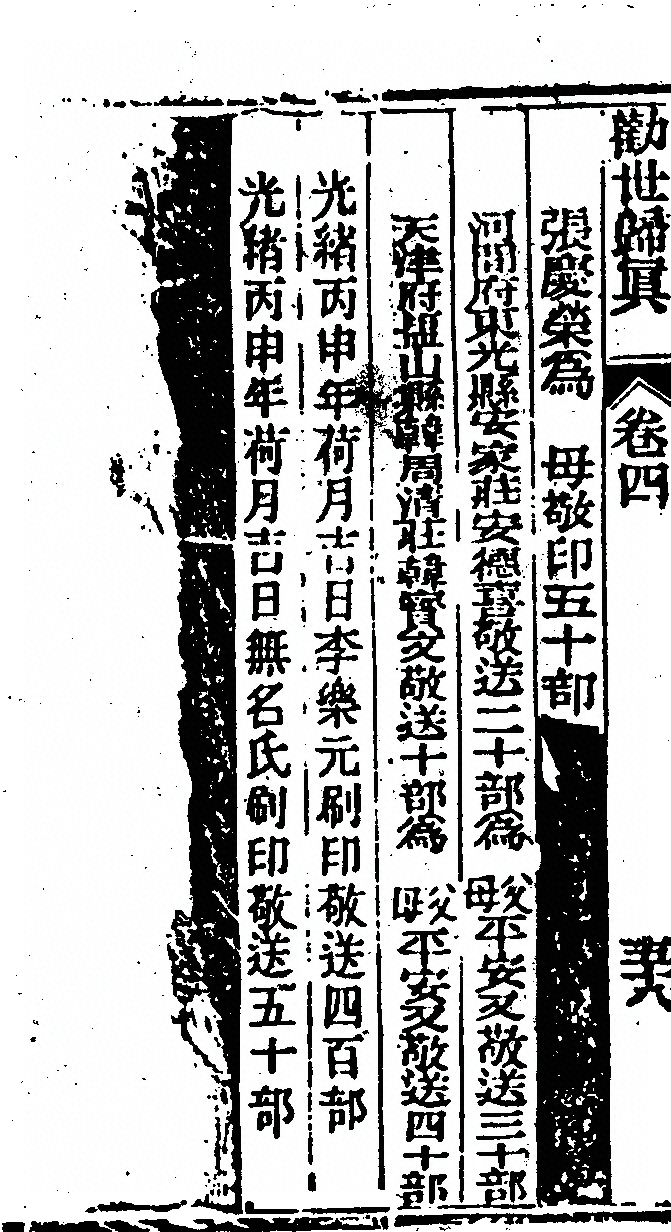 勸世歸眞
卷四
張慶榮為 母敬印五十部
河間府東光縣安家莊安德喜敬送二十部為 父母平安又敬送三十部
天津府鹽山縣韓周清莊韓寶文敬送十部為 父母平安又敬送四十部
光緒丙申年荷月吉日李樂元刷印敬送四百部
光緒丙申年荷月吉日無名氏刷印敬送五十部